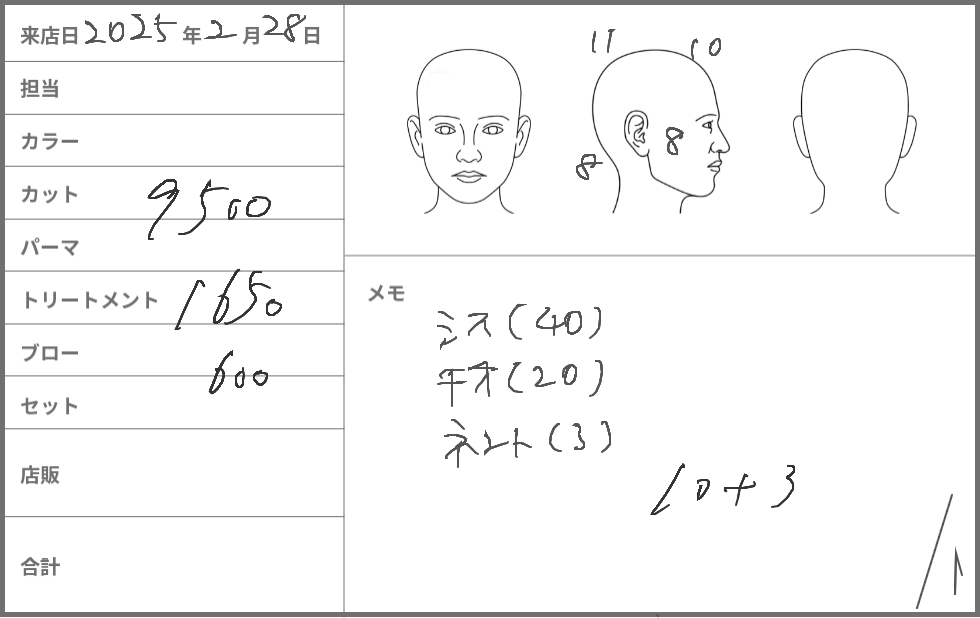 来店日 2025年2月28日
担当
カラー
カット 9500
パーマ
トリートメント 1650
ブロー 600
セット
店販
合計
11 10
8 8
メモ
シス(40)
チオ(20)
ネント(3)
10+3